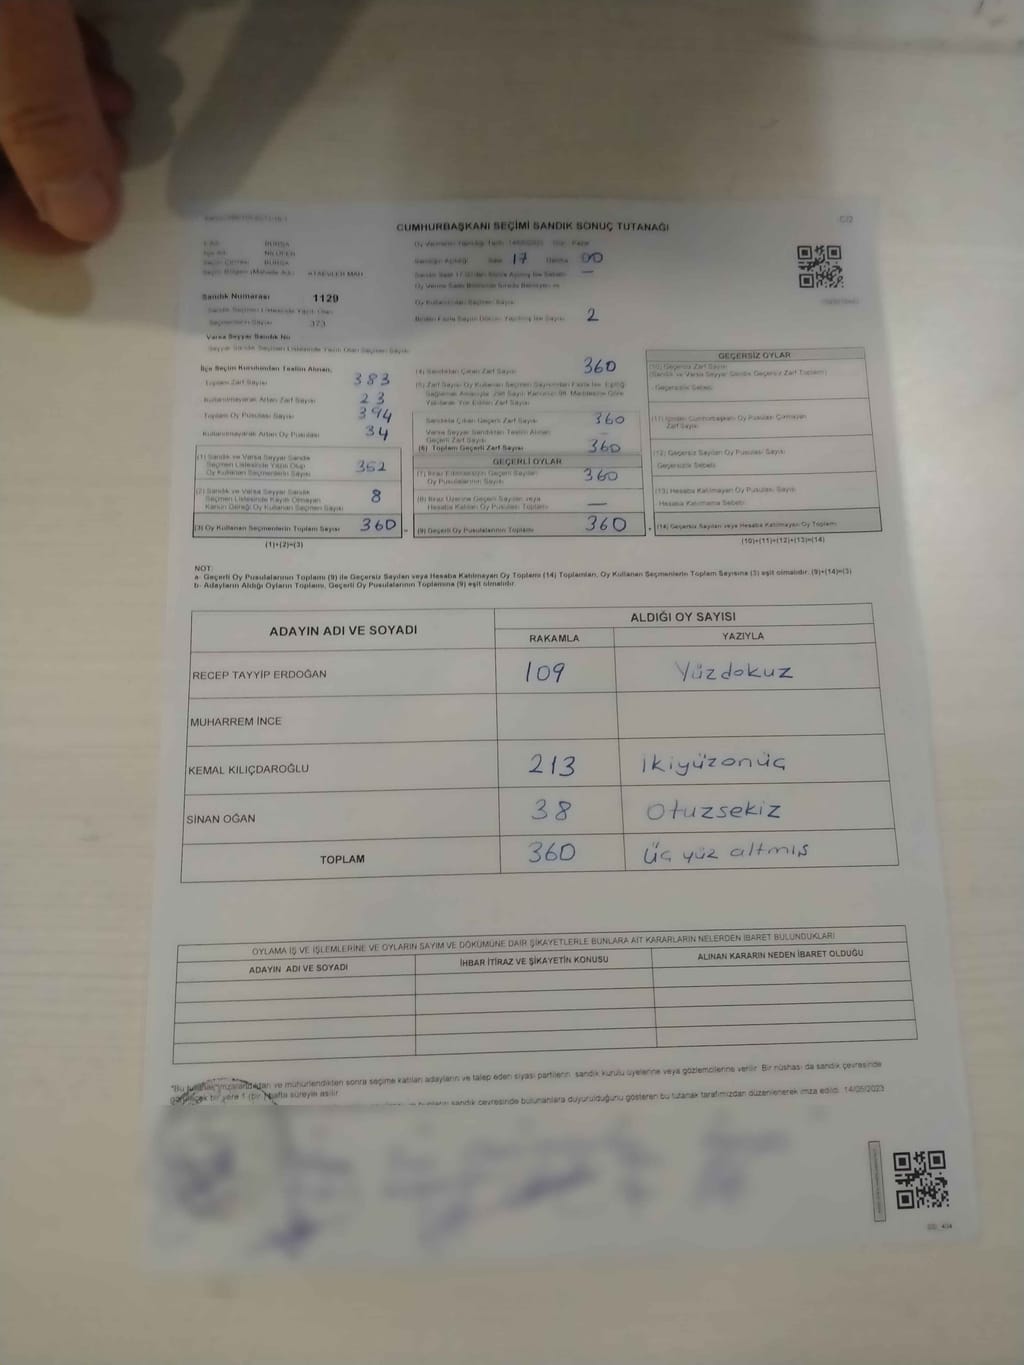 CUMHURBAŞKANI SEÇİMİ SANDIK SONUÇ TUTANAĞI
C/2
BURSA
NİLÜFER
BURSA
ATAEVLER MAH
Saat 17 Dakika 00
Sandık Numarası 1129
Sandık Seçmen Listesinde Yazılı Olan
Seçmenlerin Sayısı 373
Oy Kullandırılan Seçmen Sayısı
Birden Fazla Sayım Döküm Yapılmış İse Sayısı 2
Varsa Seyyar Sandık No
Seyyar Sandık Seçmen Listesinde Yazılı Olan Seçmen Sayısı
İlçe Seçim Kurulundan Teslim Alınan,
Toplam Zarf Sayısı 383
Kullanılmayarak Artan Zarf Sayısı 23
Toplam Oy Pusulası Sayısı 394
Kullanılmayarak Artan Oy Pusulası 34
(1) Sandık ve Varsa Seyyar Sandık
Seçmen Listesinde Yazılı Olup
Oy Kullanan Seçmenlerin Sayısı 352
(2) Sandık ve Varsa Seyyar Sandık
Seçmen Listesinde Kayıtlı Olmayan
Kanun Gereği Oy Kullanan Seçmen Sayısı 8
(3) Oy Kullanan Seçmenlerin Toplam Sayısı 360
(1)+(2)=(3)
(4) Sandıktan Çıkan Zarf Sayısı 360
(5) Zarf Sayısı Oy Kullanan Seçmen Sayısından Fazla İse, Eşitliği
Sağlamak Amacıyla, 298 Sayılı Kanunun 98. Maddesine Göre
Yakılarak Yok Edilen Zarf Sayısı
Sandıkta Çıkan Geçerli Zarf Sayısı 360
Varsa Seyyar Sandıktan Teslim Alınan
Geçerli Zarf Sayısı
(6) Toplam Geçerli Zarf Sayısı 360
GEÇERLİ OYLAR
(7) İtiraz Edilmeksizin Geçerli Sayılan
Oy Pusulalarının Sayısı 360
(8) İtiraz Üzerine Geçerli Sayılan veya
Hesaba Katılan Oy Pusulası Toplamı —
(9) Geçerli Oy Pusulalarının Toplamı 360
GEÇERSİZ OYLAR
(10) Geçersiz Zarf Sayısı
(Sandık ve Varsa Seyyar Sandık Geçersiz Zarf Toplamı)
Geçersizlik Sebebi
(11) İçinden Cumhurbaşkanı Oy Pusulası Çıkmayan
Zarf Sayısı
(12) Geçersiz Sayılan Oy Pusulası Sayısı
Geçersizlik Sebebi
(13) Hesaba Katılmayan Oy Pusulası Sayısı
Hesaba Katılmama Sebebi
(14) Geçersiz Sayılan veya Hesaba Katılmayan Oy Toplamı
(10)+(11)+(12)+(13)=(14)
NOT:
a- Geçerli Oy Pusulalarının Toplamı (9) ile Geçersiz Sayılan veya Hesaba Katılmayan Oy Toplamı (14) Toplamları, Oy Kullanan Seçmenlerin Toplam Sayısına (3) eşit olmalıdır. (9)+(14)=(3)
b- Adayların Aldığı Oyların Toplamı, Geçerli Oy Pusulalarının Toplamına (9) eşit olmalıdır.
ADAYIN ADI VE SOYADI
ALDIĞI OY SAYISI
RAKAMLA YAZIYLA
RECEP TAYYİP ERDOĞAN 109 Yüzdokuz
MUHARREM İNCE
KEMAL KILIÇDAROĞLU 213 İkiyüzonüç
SİNAN OĞAN 38 Otuzsekiz
TOPLAM 360 Üç yüz altmış
OYLAMA İŞ VE İŞLEMLERİNE VE OYLARIN SAYIM VE DÖKÜMÜNE DAİR ŞİKAYETLERLE BUNLARA AİT KARARLARIN NELERDEN İBARET BULUNDUKLARI
ADAYIN ADI VE SOYADI İHBAR İTİRAZ VE ŞİKAYETİN KONUSU ALINAN KARARIN NEDEN İBARET OLDUĞU
*Bu tutanak imzalandıktan ve mühürlendikten sonra seçime katılan adayların ve talep eden siyasi partilerin sandık kurulu üyelerine veya gözlemcilerine verilir. Bir nüshası da sandık çevresinde
görülecek bir yere 1 (bir) hafta süreyle asılır.
sandık çevresinde bulunanlara duyurulduğunu gösteren bu tutanak tarafımızdan düzenlenerek imza edildi. 14/05/2023